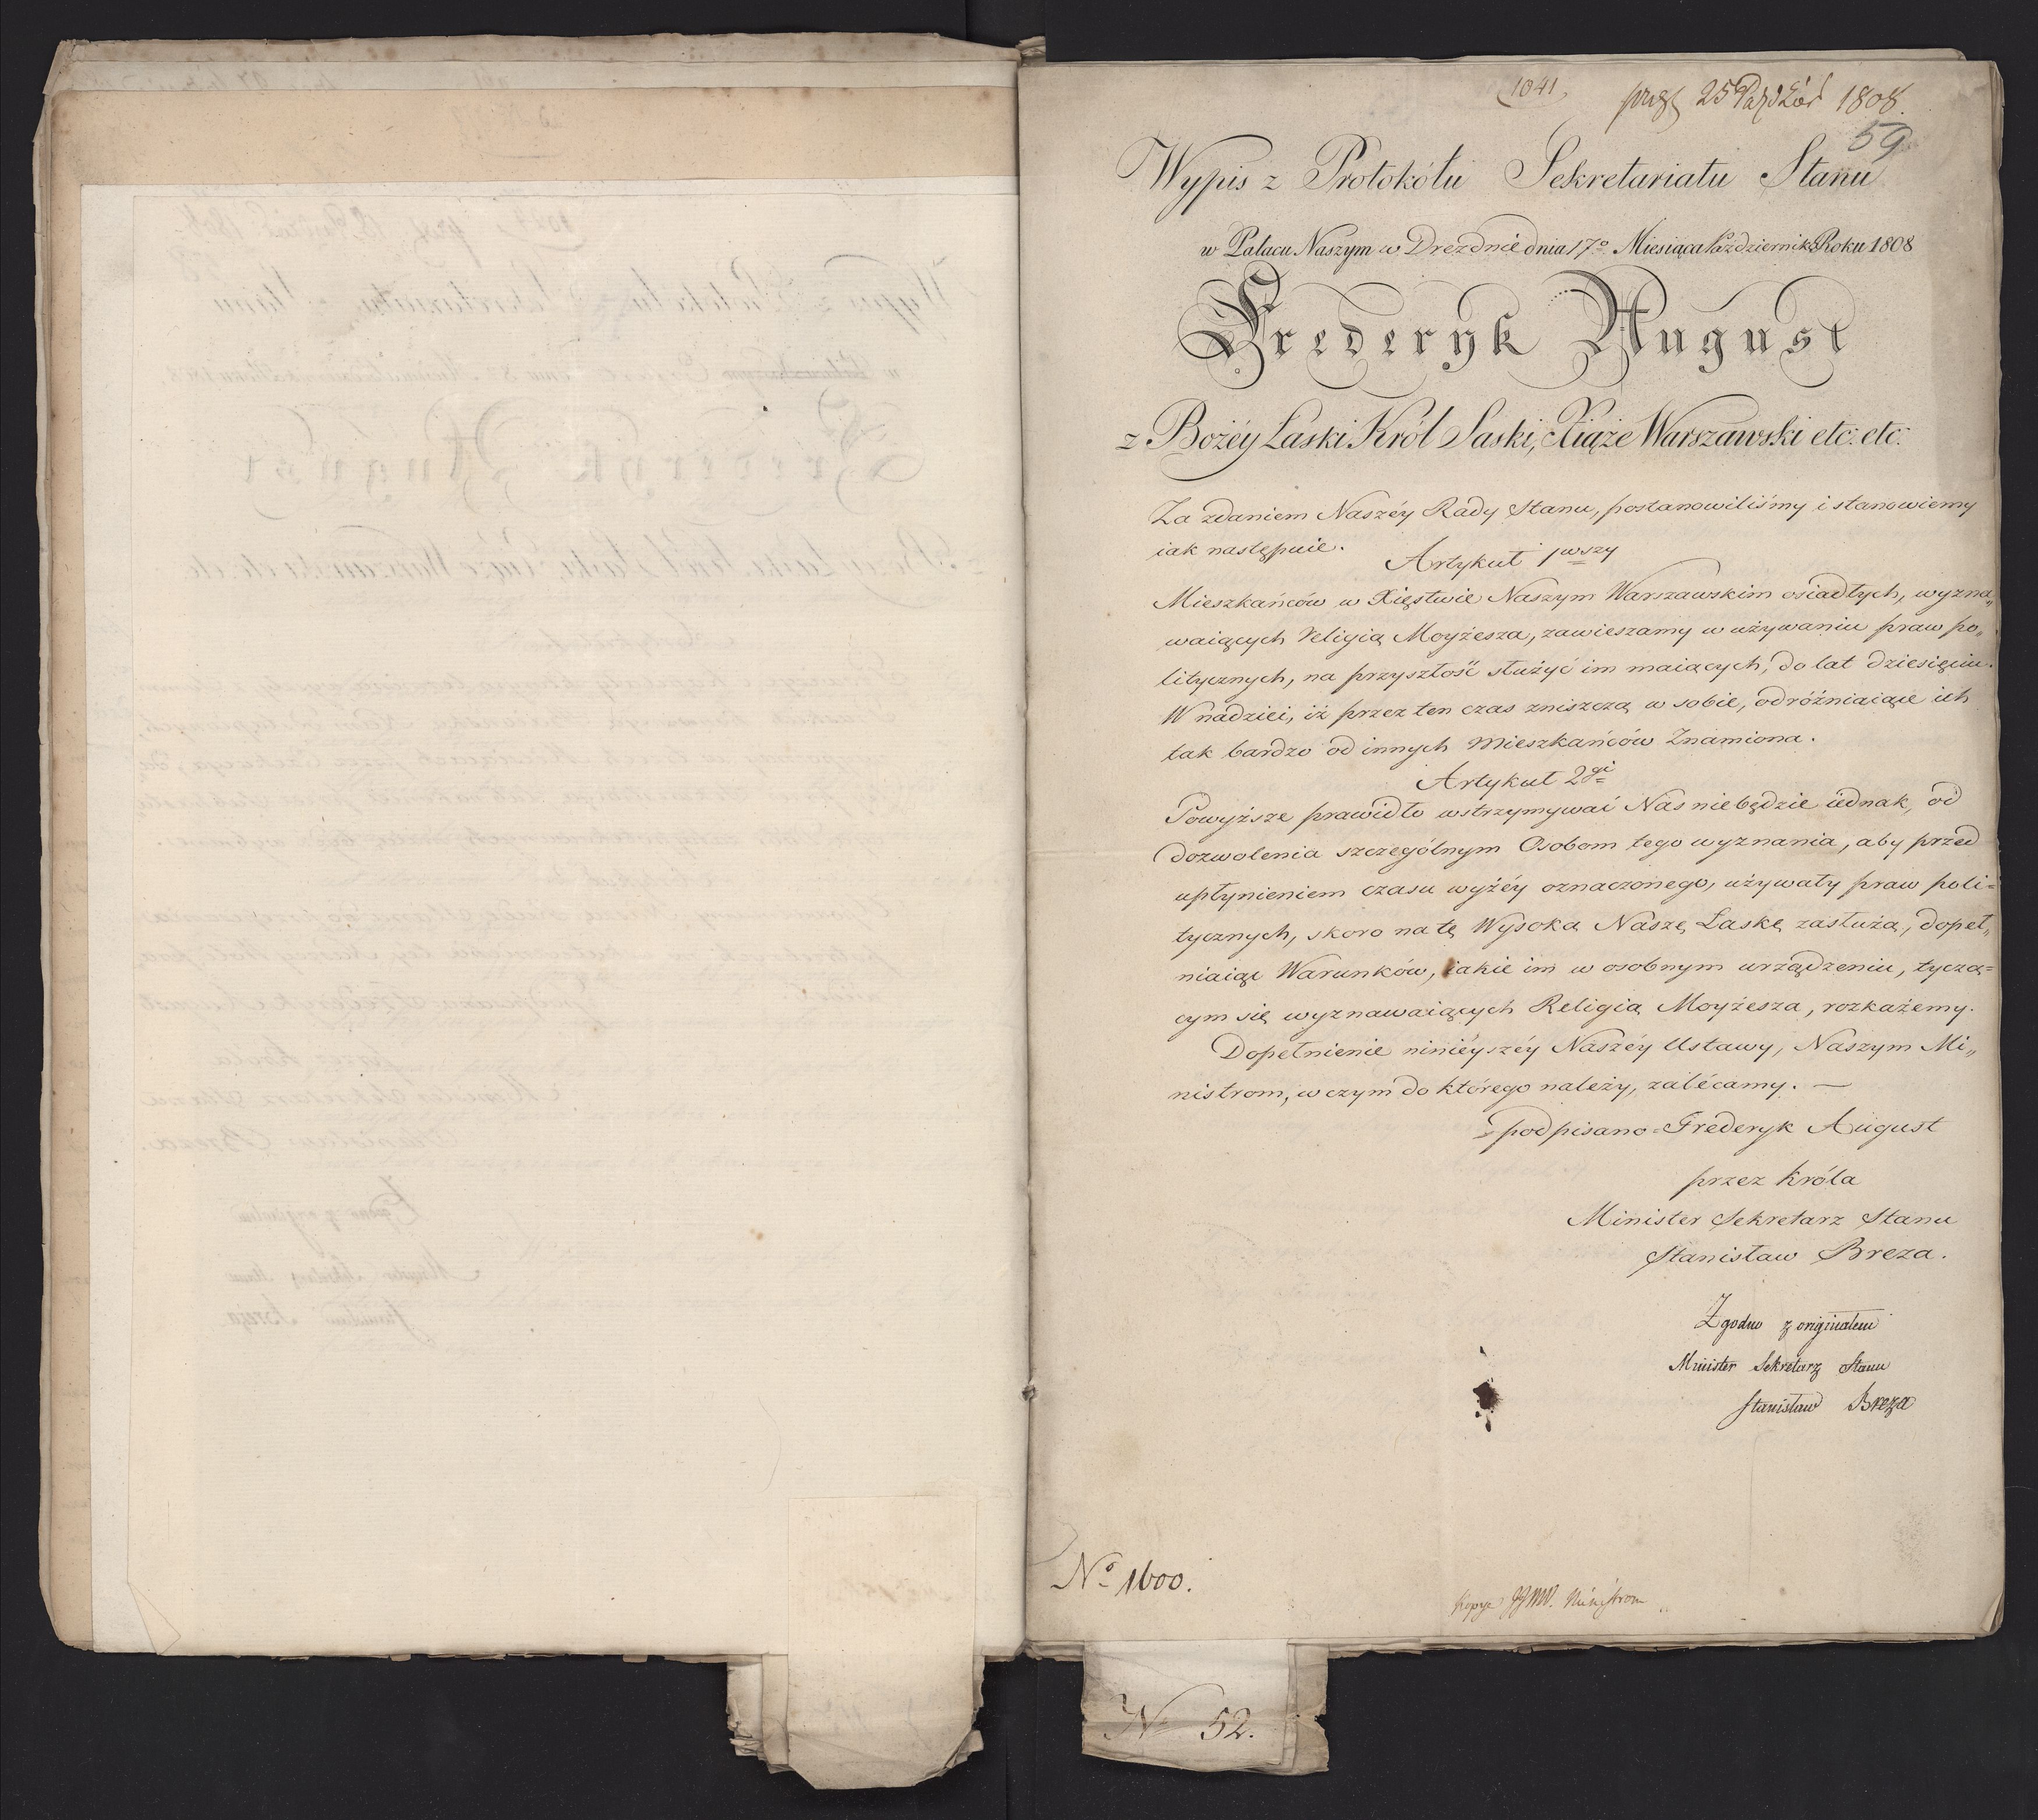 1041.
25 Paźdź 1808.
59
Wypis z Protokółu Sekretariatu Stanu
w Pałacu Naszym w Dreznie dnia 17º Miesiąca Października Roku 1808
Frederyk August
z Bożéy Łaski Król Saski, Xiąże Warszawski etc: etc:
Za zdaniem Naszéy Rady Stanu, postanowiliśmy i stanowiemy
iak następuie.
Artykuł 1wszy
Mieszkańców w Xięstwie Naszym Warszawskim osiadłych, wyzna„
waiących Religią Moyżesza, zawieszamy w używaniu praw po„
litycznych, na przyszłość służyć im maiących, do lat dziesięciu.
W nadziei, iż przez ten czas zniszczą w sobie, odróżniaiące ich
tak bardzo od innych Mieszkańców Znamiona.
Artykuł 2gi
Powyższe prawidło wstrzymywać Nas niebędzie iednak, od
dozwolenia szczególnym Osobom tego wyznania, aby przed
upłynieniem czasu wyżéy oznaczonego, używały praw poli=
tycznych, skoro na tę Wysoką Naszę Łaskę zasłużą, dopeł„
niaiąc Warunków, iakie im w osobnym urządzeniu, tyczą=
cym się wyznawaiących Religią Moyżesza, rozkażemy.
Dopełnienie ninieyszéy Naszéy Ustawy, Naszym Mi„
nistrom, w czym do którego należy, zalécamy. —
podpisano = Frederyk August
przez Króla
Minister Sekretarz Stanu
Stanisław Breza.
Zgodno z originałem
Minister Sekretarz Stanu
Stanisław Breza
Nº 1600.
Kopye JJWW. Ministrom
Nº 52.